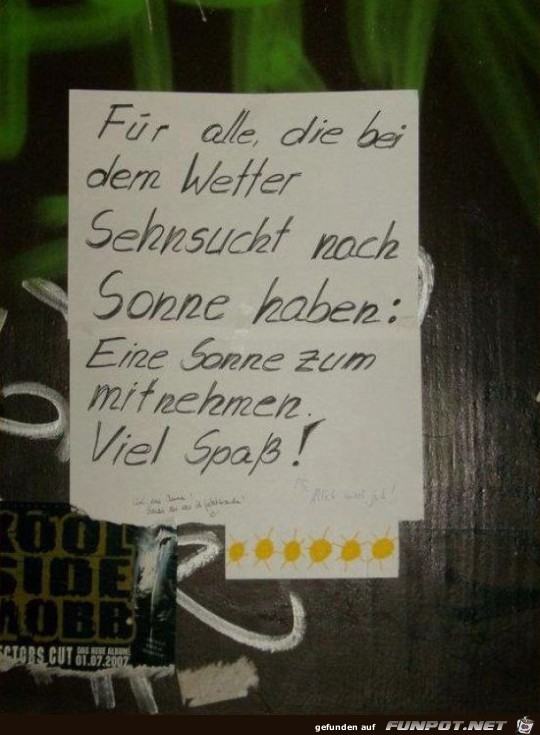 Für alle, die bei
dem Wetter
Sehnsucht nach
Sonne haben:
Eine Sonne zum
mitnehmen.
Viel Spaß!
KOOL
SIDE
MOBB
ECTORS CUT DAS NEUE ALBUM
01.07.2007
gefunden auf FUNPOT.NET